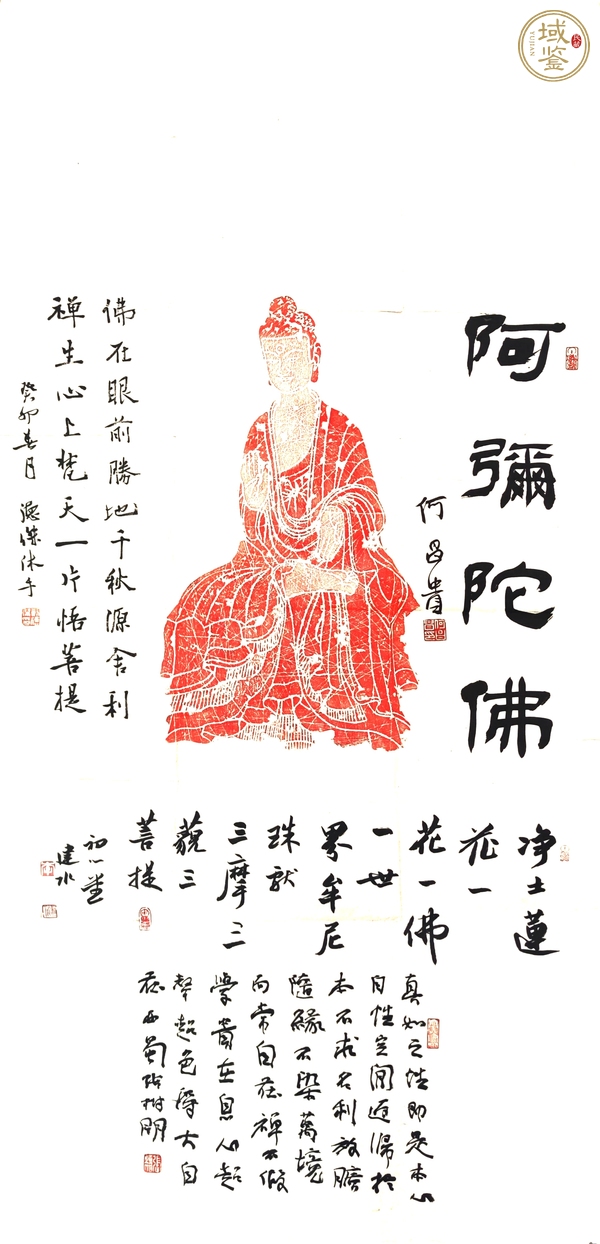 域鉴
YUJIAN
阿彌陀佛
何昌貴
佛在眼前勝地千秋源舍利
禅生心上梵天一片悟菩提
癸卯春月
净土蓮
花一
花一佛
一世
界牟尼
珠献
三摩三
藐三
菩提
初心堂
建水
真如之性即是本心
自性空闻迴歸於
本不求名利放瞻
隨緣不染萬境
而常自在禅不做
學貴在息心超
聲超色得大自
在西蜀